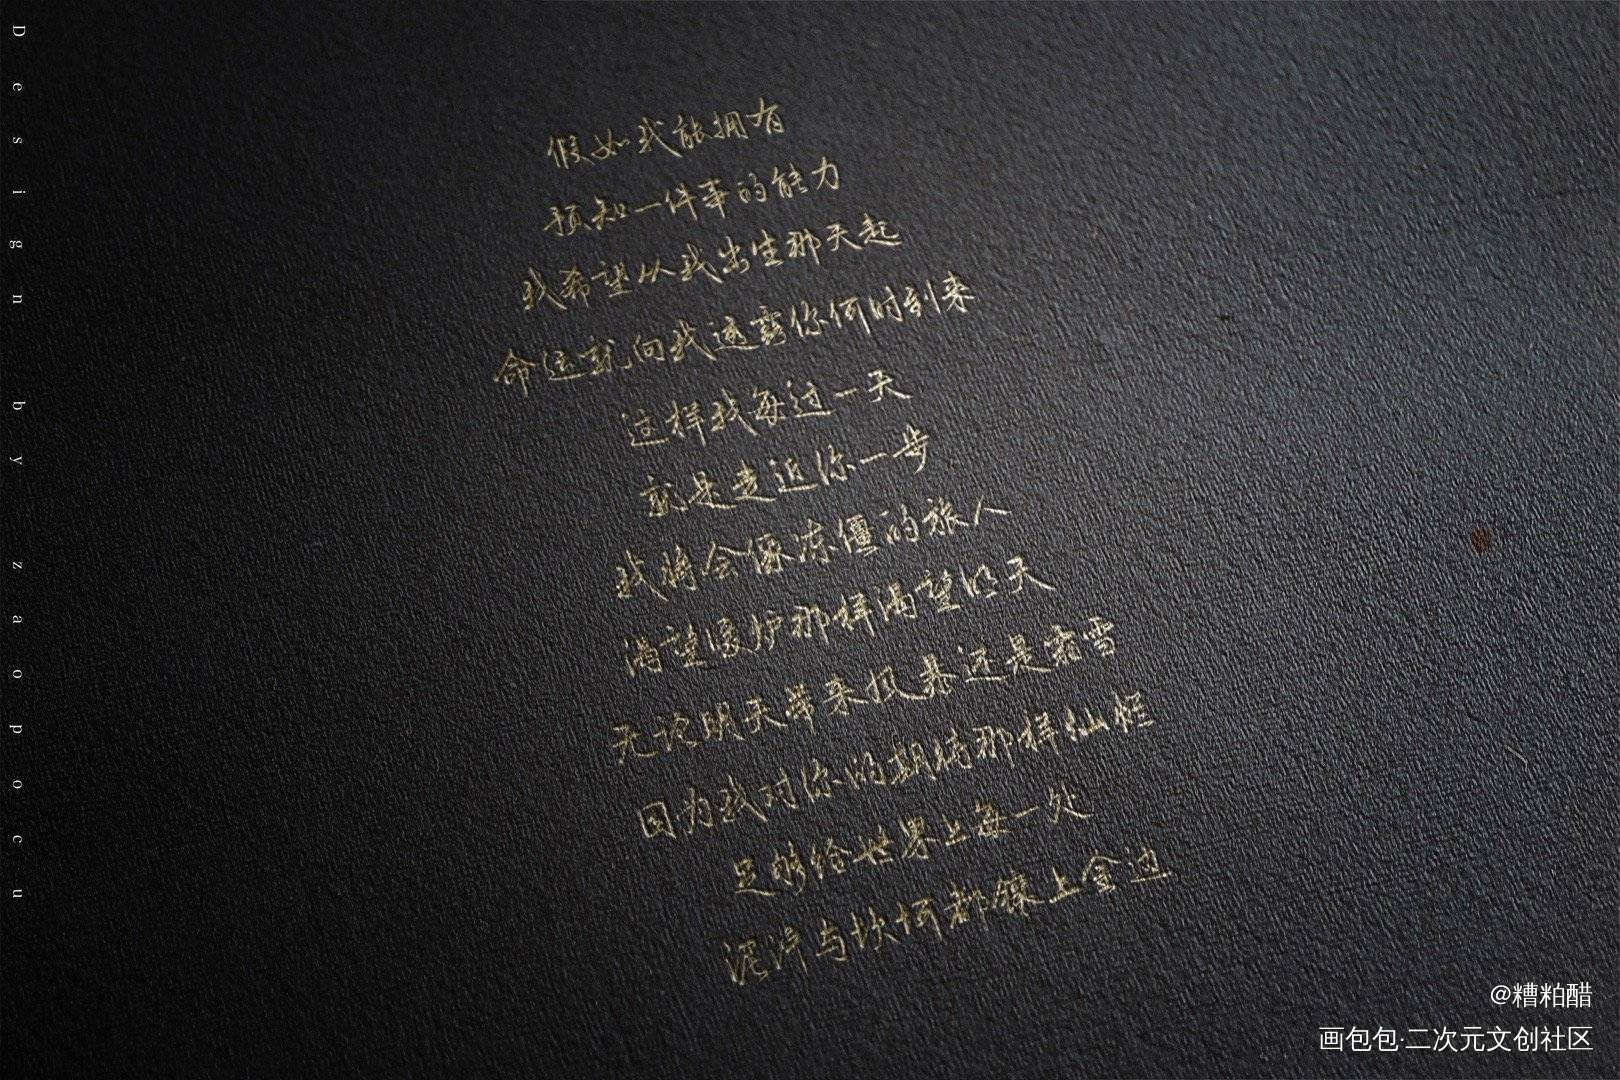 Design by zaopocu
假如我能拥有
预知一件事的能力
我希望从我出生那天起
命运就向我透露你何时到来
这样我每过一天
就是走近你一步
我将会像冻僵的旅人
渴望暖炉那样渴望明天
无论明天带来风暴还是霜雪
因为我对你的期待那样灿烂
足够给世界上每一处
泥泞与坎坷都镶上金边
@糟粕醋
画包包·二次元文创社区